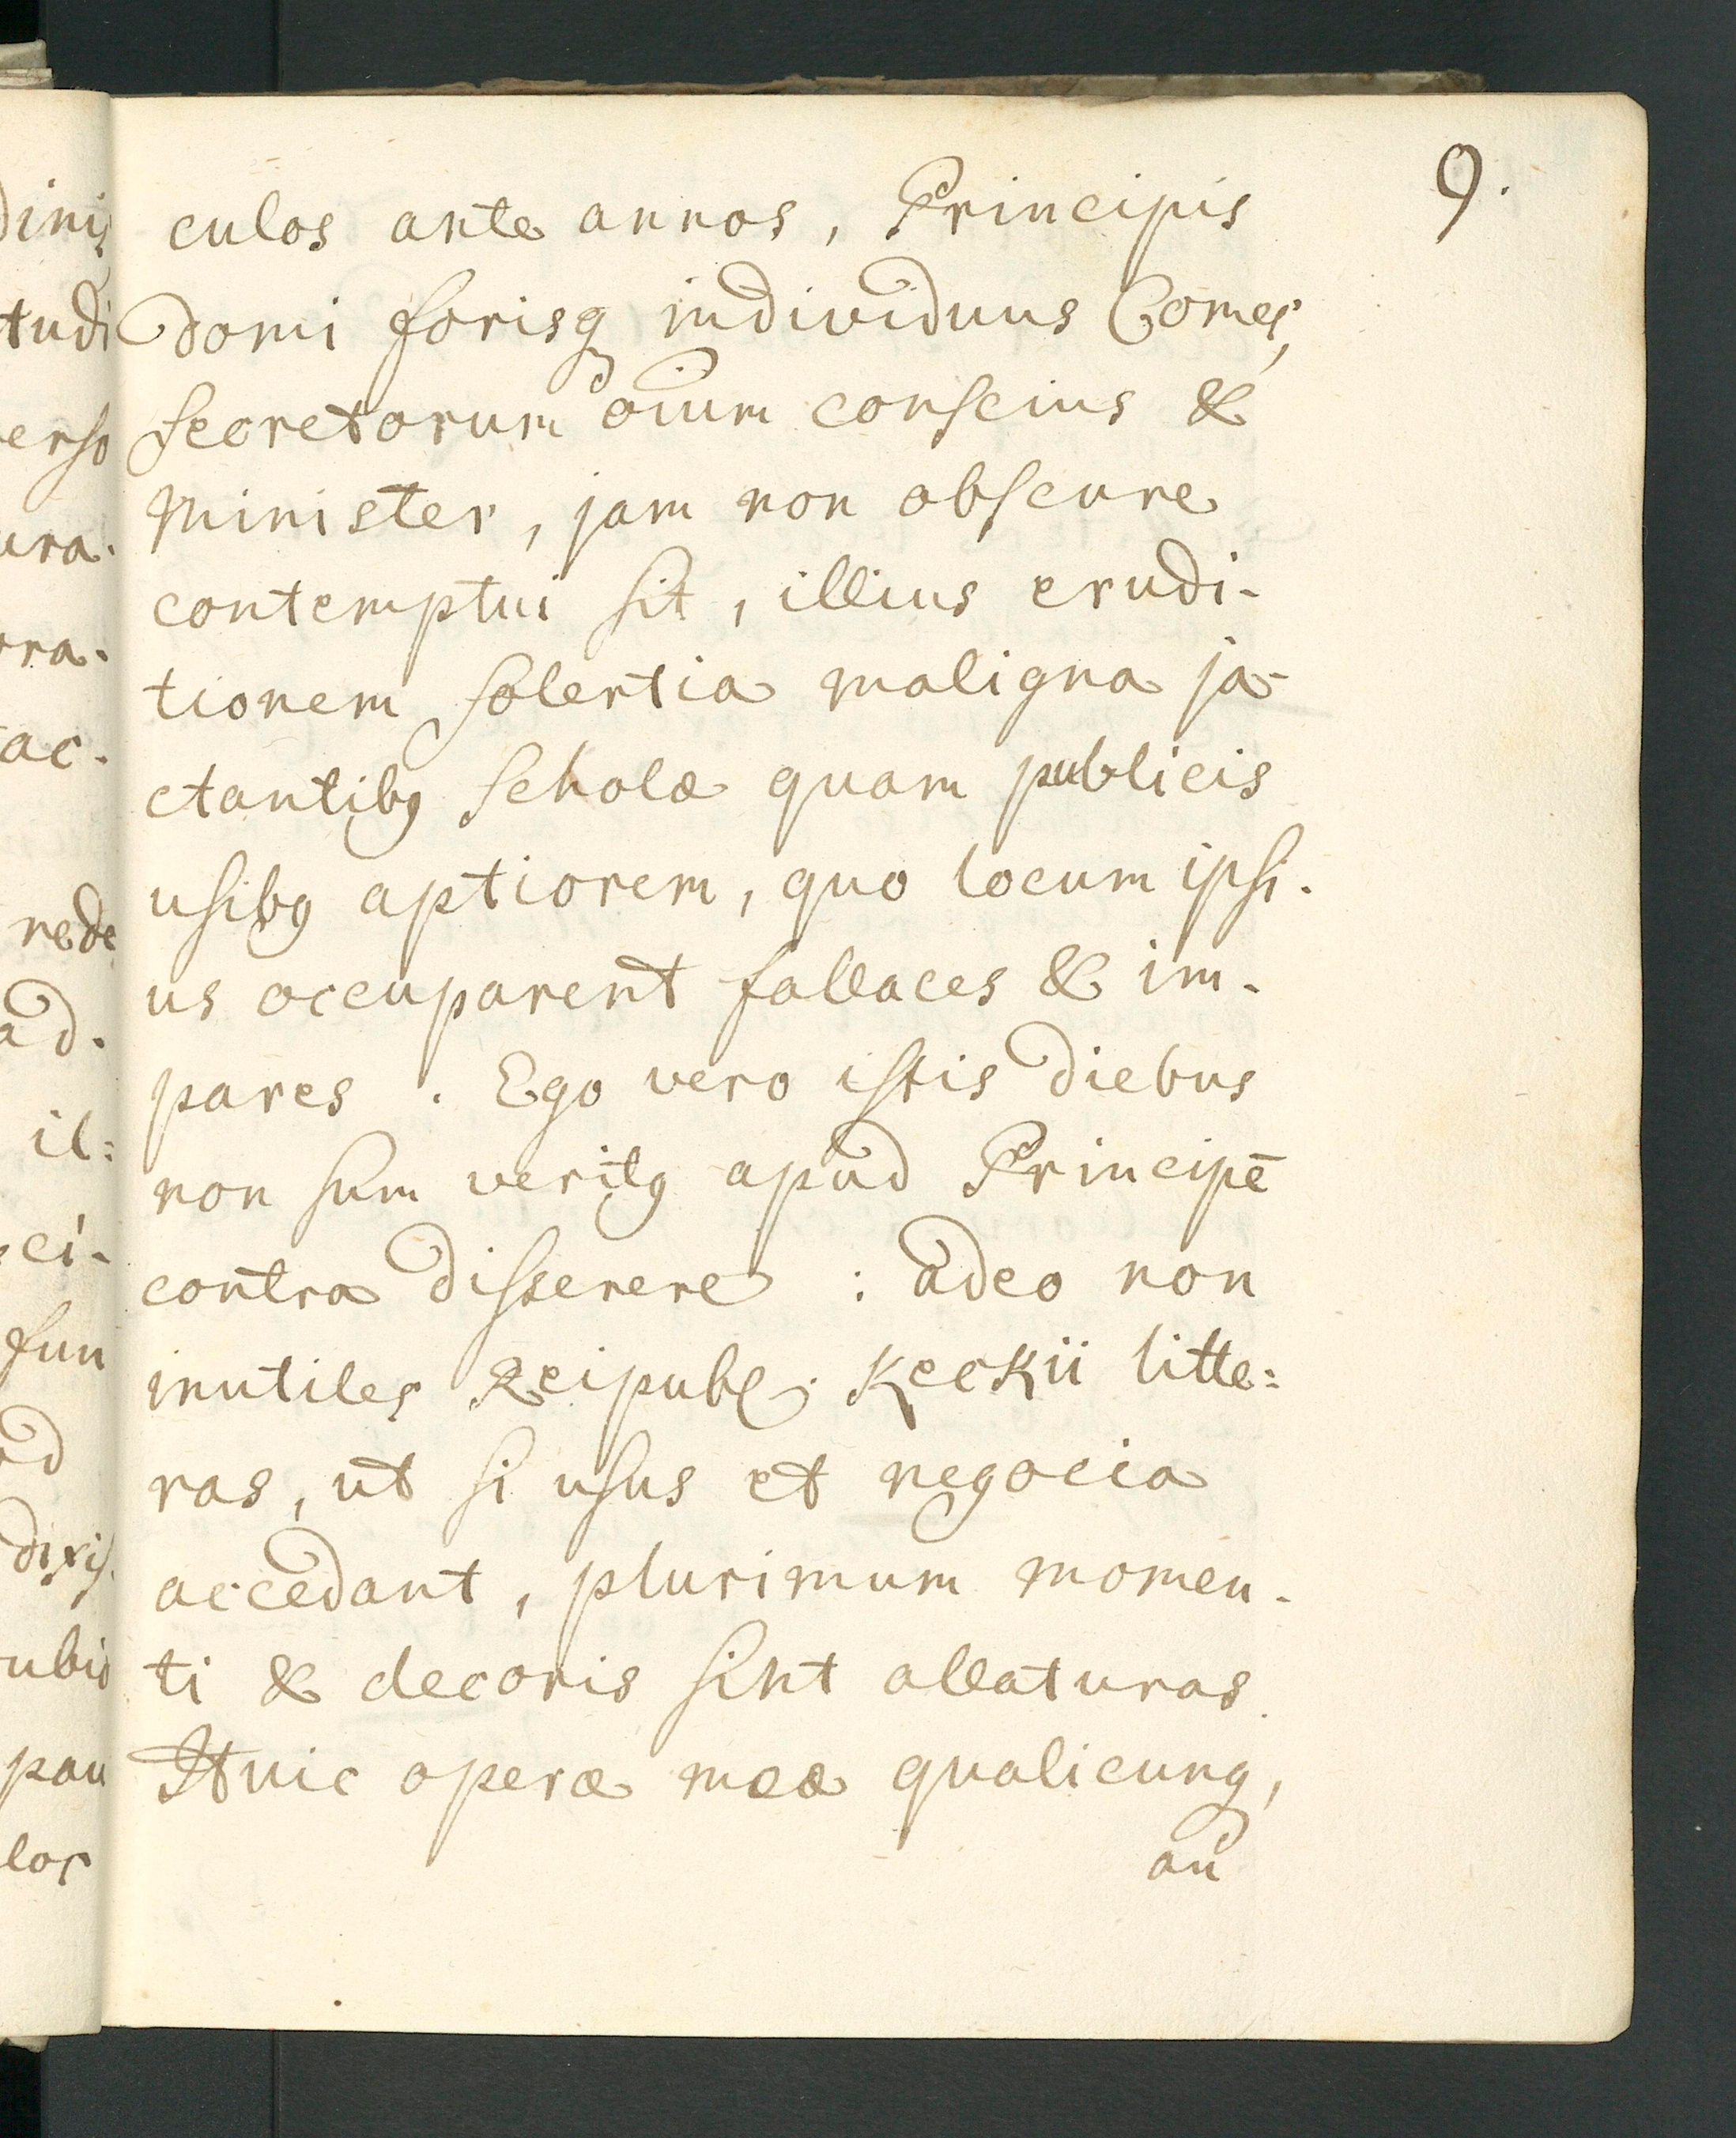 9.
culos ante annos, Principis
domi forisq́ individuus Comes,
secretorum oium conscius &
Minister, jam non obscure
contemptui sit, illius erudi-
tionem solertia maligna ja-
ctantibꝰ scholæ quam publicis
usibꝰ aptiorem, quo locum ipsi-
us occuparent fallaces & im-
pares. Ego vero istis diebus
non sum veritꝰ apud Principē
contra disserere : adeo non
inutiles Reipubl. Keckii litte=
ras, ut si usus et negocia
accedant, plurimum momen-
ti & decoris sint allaturas.
Huic operæ meæ qualicunq,
an